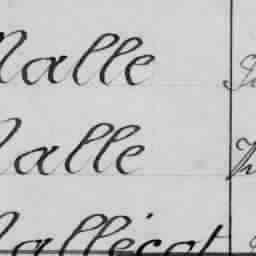 Malle
Malle
Mallécot